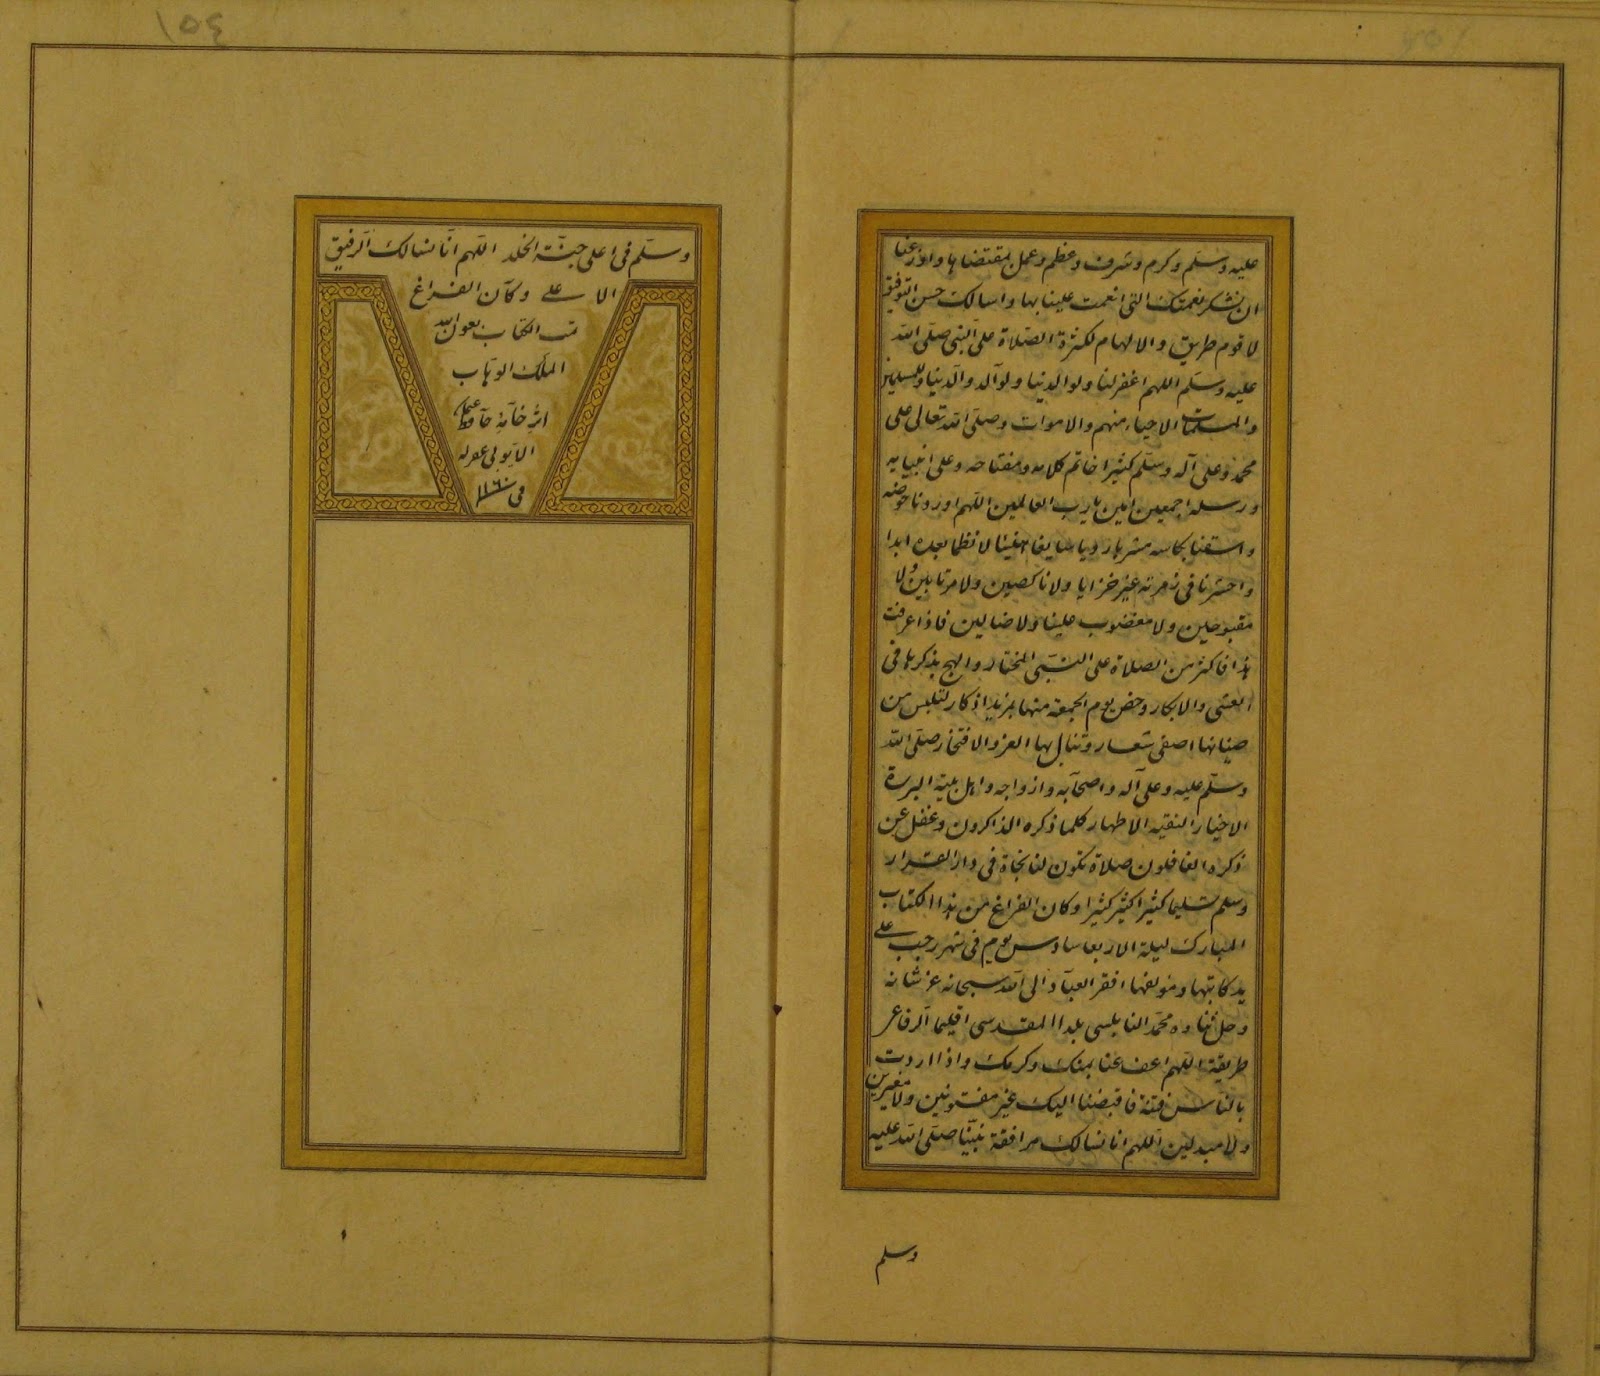 عليه وسلم وكرم وشرف وعظم وعمل بمقتضاها واوزعنا
ان نشكر نعمتك التي انعمت علينا بها واسالك حسن التوفيق
لاقوم طريق والالهام لكثرة الصلاة على النبي صلى الله
عليه وسلم اللهم اغفر لنا ولوالدينا ولوالد والدينا وللمسلمين
والمسلمات الاحياء منهم والاموات وصلى الله تعالى على
محمد وعلى آله وسلم كثيرا خاتم كلامه ومفتاحه وعلى انبيايه
ورسله اجمعين امين يا رب العالمين اللهم اوردنا حوضه
واسقنا بكاسه مشربا رويا سايغا هنيئا لا نظما بعده ابدا
واحشرنا في زمرته غير خزايا ولا ناكصين ولا مرتابين ولا
مقبوحين ولا مغضوب علينا ولا ضالين فاذا عرفت
هذا فاكثر من الصلاة على النبي المختار والهج بذكرها في
العشي والابكار وخص يوم الجمعة منها بمزيد اذكار لتلبس من
اصفى شعار وتنال بها العز والافتخار صلى الله
وسلم عليه وعلى آله واصحابه وازواجه واهل بيته البررة
الاخيار النقيه الاطهار كلما ذكره الذاكرون وغفل عن
ذكره الغافلون صلاة تكون لنا نجاة في دار القرار
وسلم تسليما كثيرا كثيرا كثيرا وكان الفراغ من هذا الكتاب
المبارك ليلة الاربعا سادس يوم في شهر رجب على
يد كاتبها ومؤلفها افقر العباد الى الله سبحانه عز شانه
وجل ثناوه محمد النابلسي بلدا المقدسي اقليما الرفاعي
طريقة اللهم اعف عنا بمنك وكرمك واذا اردت
بالناس فتنة فاقبضنا اليك غير مفتونين ولا مغيرين
ولا مبدلين اللهم انا نسالك مرافقة نبينا صلى الله عليه
وسلم
١٥٤
وسلم في اعلى جنة الخلد اللهم انا نسالك الرفيق
الاعلى وكان الفراغ
تمت الكتاب بعون الله
الملك الوهاب
اثر خامة حافظ
الايوبي غفر له
في ١١٦٠